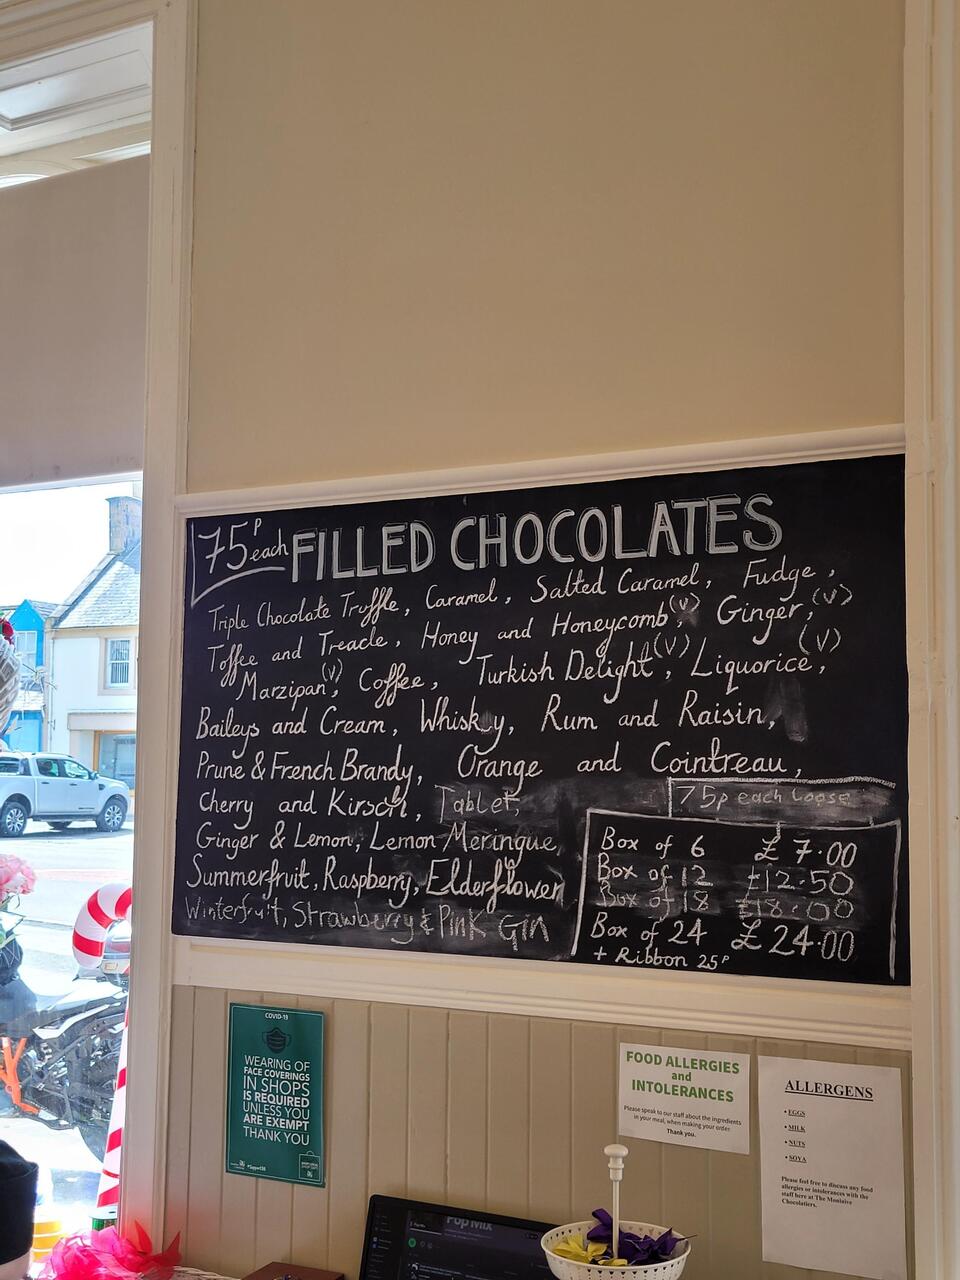 75P each FILLED CHOCOLATES
Triple Chocolate Truffle, Caramel, Salted Caramel, Fudge,
Toffee and Treacle, Honey and Honeycomb(v), Ginger,(v)
Marzipan(v), Coffee, Turkish Delight(V), Liquorice(V),
Baileys and Cream, Whisky, Rum and Raisin,
Prune & French Brandy, Orange and Cointreau,
Cherry and Kirsch, Tablet,
75p each loose
Ginger & Lemon, Lemon Meringue,
Summerfruit, Raspberry, Elderflower
Winterfruit, Strawberry & PINK GIN
Box of 6 £7.00
Box of 12 £12.50
Box of 18 £18.00
Box of 24 £24.00
+ Ribbon 25P
COVID-19
WEARING OF
FACE COVERINGS
IN SHOPS
IS REQUIRED
UNLESS YOU
ARE EXEMPT
THANK YOU
FOOD ALLERGIES
and
INTOLERANCES
Please speak to our staff about the ingredients
in your meal, when making your order.
Thank you.
ALLERGENS
• EGGS
• MILK
• NUTS
• SOYA
Please feel free to discuss any food
allergies or intolerances with the
staff here at The Moniaive
Chocolatiers.
Pop Mix